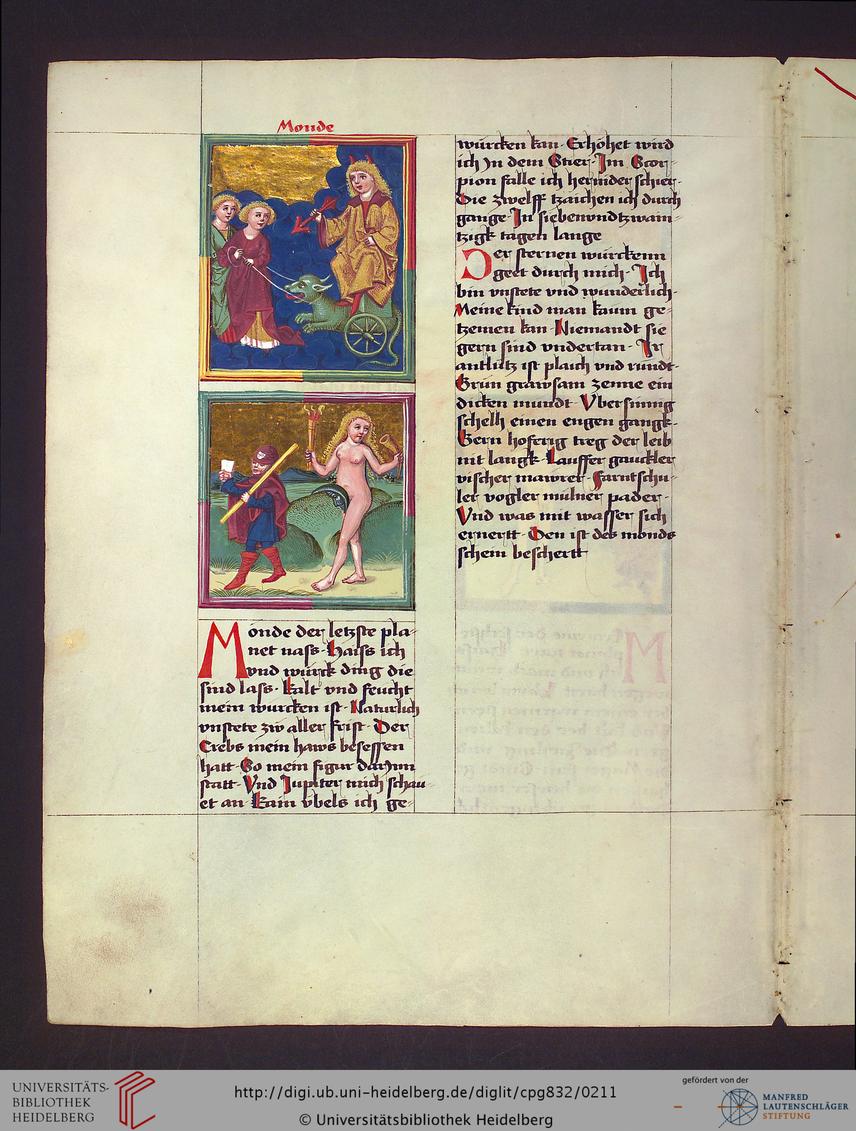 Monde
Monde der letzste pla-
net nass · Haiss ich
vnd wurck ding die
sind lass · Kalt vnd feucht
mein wurcken ist · Naturlich
vnstete zw aller frist · Der
Crebs mein haws besessen
hatt · So mein figur darynn
statt · Vnd Jupiter mich schau-
et an · Kain vbels ich ge-
wurcken kan · Erhöhet wird
ich yn dem Stier · Jm Scor-
pion falle ich hernider schier ·
Die zwelff tzaichen ich durch
gange · Jn siebenvndtzwain-
tzigk tagen lange
Der sternen würckenn
geet durch mich · Jch
bin vnstete vnd wunderlich ·
Meine kind man kaum ge-
tzemen kan · Niemandt sie
gern sind vndertan · Jr
antlütz ist plaich vnd rundt ·
Grün grawsam zenne ein
dicken mundt · Vbersinnig
schelh einen engen gangk ·
Gern hoferig treg der leib
nit langk · Lauffer gauckler
vischer marner · Farntschu-
ler vogler mulner pader ·
Vnd was mit wasser sich
ernertt · Den ist des monds
schein beschertt
UNIVERSITÄTS-
BIBLIOTHEK
HEIDELBERG
http://digi.ub.uni-heidelberg.de/diglit/cpg832/0211
© Universitätsbibliothek Heidelberg
gefördert von der
MANFRED
LAUTENSCHLÄGER
STIFTUNG